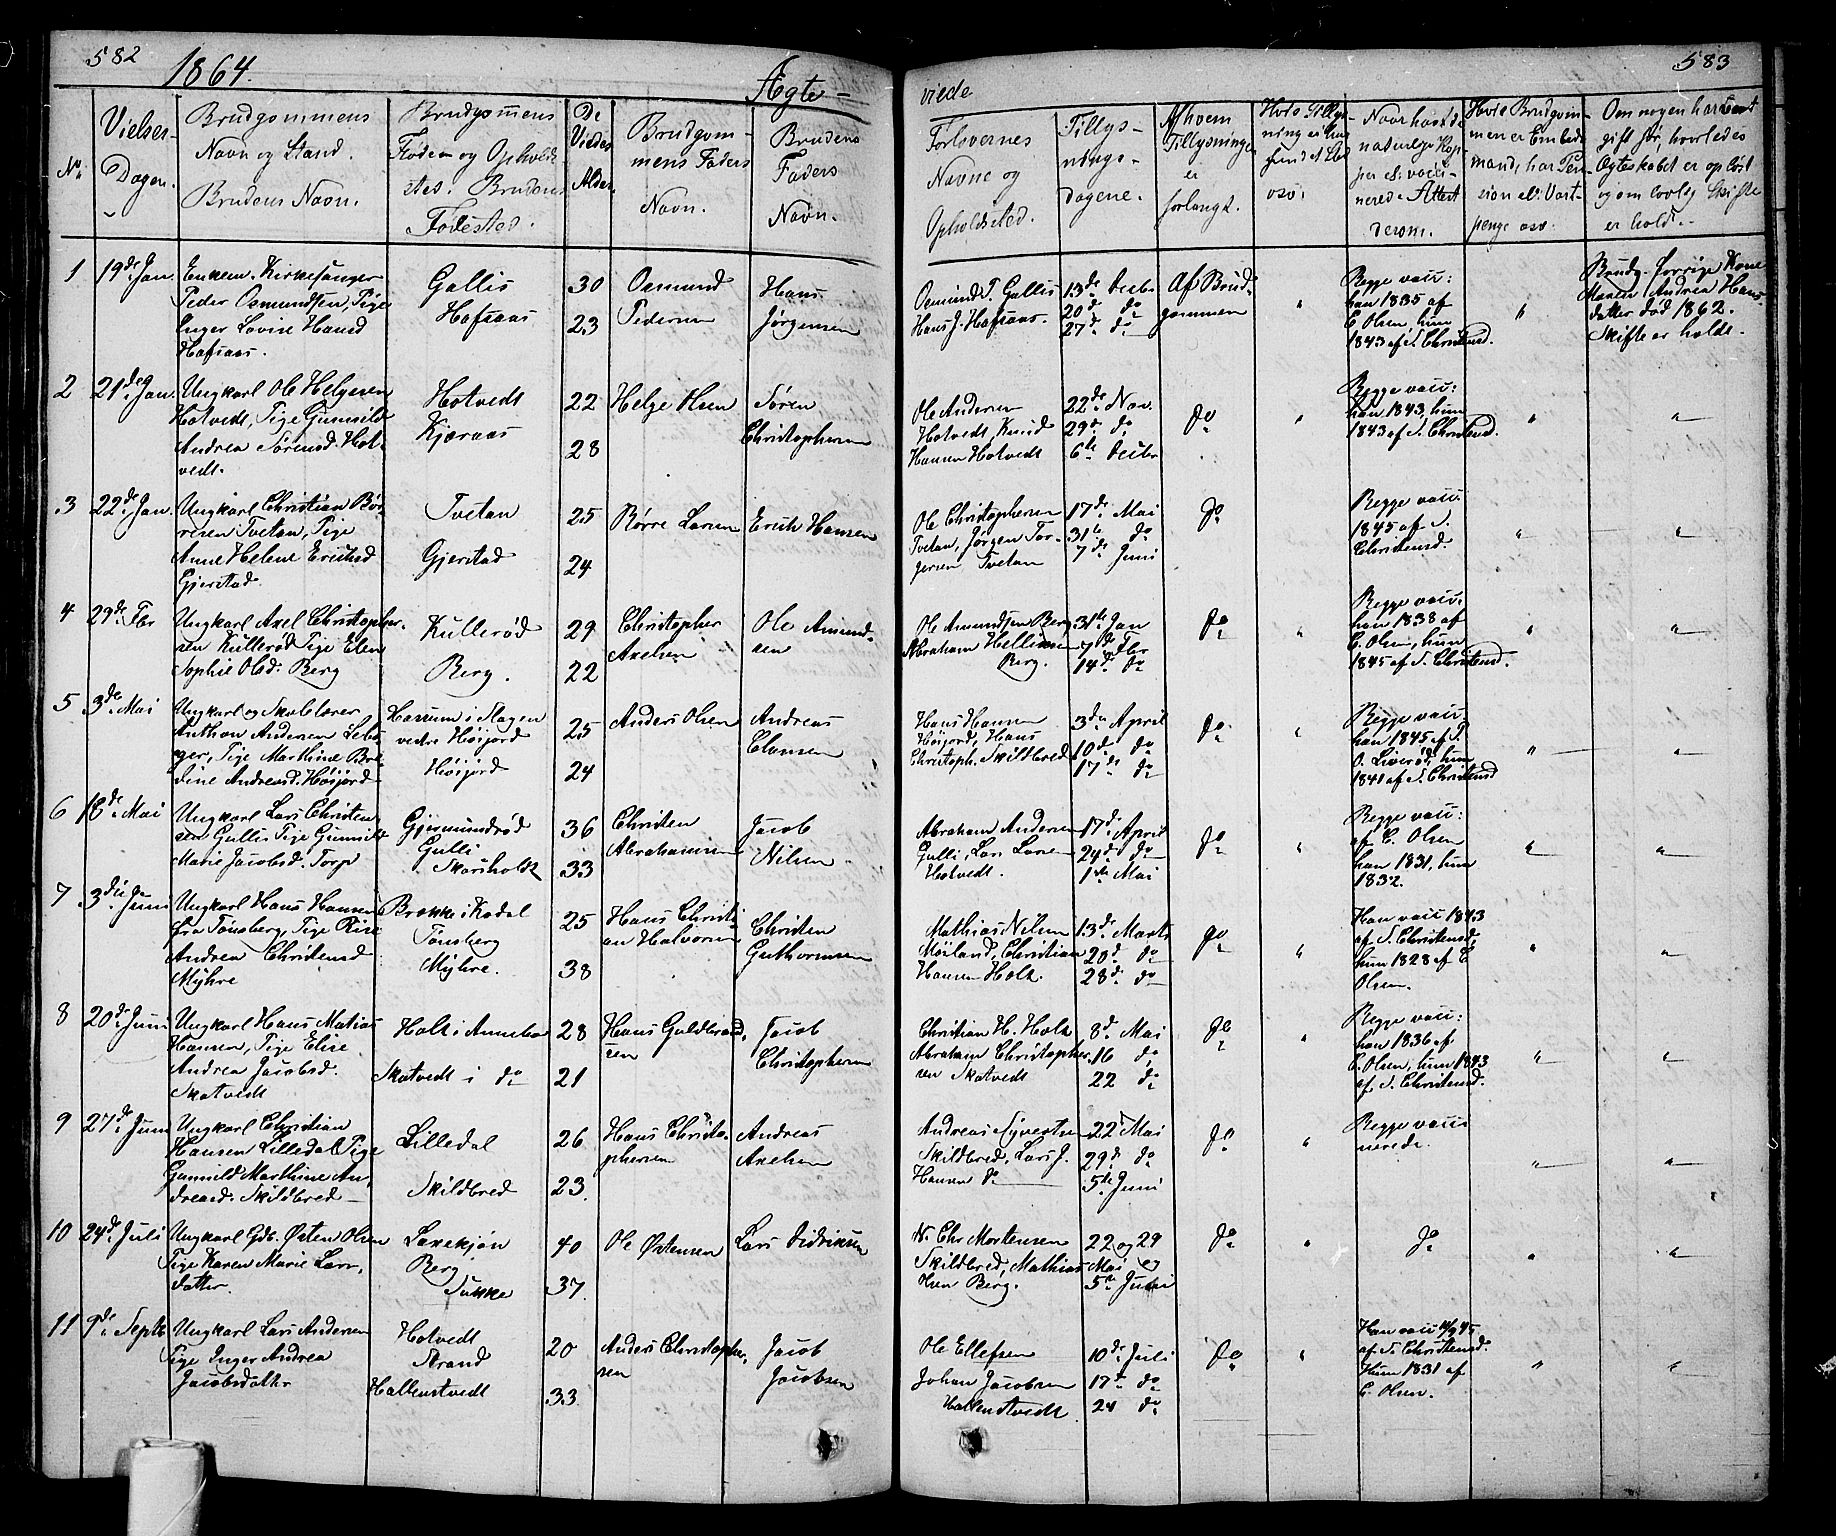 582
1864.
Ægte-
viede
583
No
Vielses-
Dagen.
Brudgommens
Navn og Stand.
Brudens Navn.
Brudgommens
Fødem og Opholds-
sted. Brudens
Fødested.
De
Viedes
Alder.
Brudgom-
mens Faders
Navn.
Brudens
Faders
Navn.
Forlovernes
Navne og
Opholdssted.
Tillys-
nings-
dagene.
Af hvem
Tillysningen
er
forlangt.
Naar havt de
naturlige Kop-
per el. vacci-
nered. Attest
derom.
Hvis Brudgom-
men er Embeds-
mand, har Pen-
sion el. Vart-
penge osv.
Om nogen har været
gift før, hvorledes
Ægteskabet er opløst
og om lovlig Skifte
er holdt.
1
19de Jan.
Enkem. Kirkesanger
Peder Osmundsen, Pige
Inger Lovise Hansd
Hafsaas.
Gallis
Hafsaas
30
23
Osmund
Pedersen
Hans
Jørgensen
Osmund P. Gallis
Hans J. Hafsaas.
13de Decbr
20de do
27de do
Af Brud-
gommen
"
Begge vacc:
han 1835 af
C. Olsen, hun
1843 af S. Christensd.
"
Brudg. forrige Kone
Maren Andrea Hans-
datter død 1862.
Skifte er holdt.
2
21de Jan.
Ungkarl Ole Helgesen
Hotvedt, Pige Gunnild
Andrea Sørensd. Hot-
vedt.
Hotvedt
Kjæraas
22
28
Helge Hsen
Søren
Christophersen
Ole Andersen
Hotvedt, Knud
Hansen Hotvedt
22de Nov.
29de do
6te Decbr
do
"
Begge vacc:
han 1843, hun
1843 af S. Christensd.
"
"
3
22de Jan.
Ungkarl Christian Bør-
resen Tvetan, Pige
Anne Helene Erichsd
Gjerstad.
Tvetan
Gjerstad
25
24
Børre Larsen
Erich Hansen
Ole Christophersen
Tvetan, Jørgen Tor-
gersen Tvetan
17de Mai
31te do
7de Juni
do
Begge vacc.
1845 af S.
Christensd.
"
"
4
29de Fbr
Ungkarl Axel Christopher-
sen Kullerød Pige Elen
Sophie Olsd: Berg
Kullerød
Berg.
29
22
Christopher
Axelsen
Ole Amund-
sen
Ole Amundsen Berg
Abraham Hellissen
Berg.
31te Jan
7de Fbr
14de do
do
"
Begge vacc:
han 1838 af
C. Olsen, hun
1845 af S. Christensd.
"
"
5
3de Mai
Ungkarl og Skolelærer
Anthon Andersen Leba-
ger, Pige Marthine Bre-
dine Andreasd. Høijord
Hassum i Slagen
vedre Høijord
Høijord
25
24
Anders Olsen
Andreas
Clausen
Hans Hansen
Høijord, Hans
Christoph. Skildbred
3die April
10de do
17de do
do
"
Begge vacc:
han 1845 af P.
O. Liverød, hun
1841 af S. Christensd
"
"
6
16de Mai
Ungkarl Lars Christen-
sen Gulli Pige Gunnild
Marie Jacobsd. Torp
Gjermundrød
Gulli
Skarsholdt
36
33
Christen
Abrahamsen
Jacob
Nilsen
Abraham Andersen
Gulli, Lars Larsen
Hotvedt.
17de April
24de do
1ste Mai
do
"
Begge vacc:
af C. Olsen
han 1831, hun
1832.
"
"
7
3die Juni
Ungkarl Hans Hansen
fra Tønsberg, Pige Rise
Andrea Christensd
Myhre
Brække i Kodal
Tønsberg
Myhre.
25
38
Hans Christi-
an Halvorsen
Christen
Guthormsen
Mathias Nilsen
Møiland, Christian
Hansen Holt.
13de Marts
20de do
28de do
do
"
Han vacc 1843
af S. Christensd,
hun 1828 af C
Olsen.
"
"
8
20de Juni
Ungkarl Hans Matias
Hansen, Pige Elise
Andrea Jacobsd.
Skatvedt
Holt i Annebo
Skatvedt i do
28
21
Hans Guldbrand-
sen
Jacob
Christophersen
Christian H. Holt
Abraham Christopher-
sen Skatvedt
8de Mai
16 do
22 do
do
"
Begge vacc:
han 1836 af
C. Olsen, hun 1843
af S. Christensd.
"
"
9
27de Juni
Ungkarl Christian
Hansen Lilledal Pige
Gunnild Marthine An-
dreasd. Skildbred
Lilledal
Skildbred
26
23.
Hans Christo-
phersen
Andreas
Axelsen
Andreas Syvertsen
Skildbred, Lars J.
Hansen do
22 Mai
29de do
5te Juni
do
"
Begge vacci
nerede.
"
"
10
24de Juli
Ungkarl Gdb. Østen Olsen
Pige Karen Marie Lars-
datter.
Laxekjøn
Berg
Sukke
40
37.
Ole Østensen
Lars Didriksen
N. Chr Mortensen
Skildbred, Mathias
Hsen Berg.
22 og 29
Mai og
5te Juni
do
"
do
"
"
11
9de Septbr
Ungkarl Lars Andersen
Pige Inger Andrea
Jacobsdatter
Hotvedt
Strand
Hallenstvedt
20
33
Anders Christopher-
sen
Jacob
Jacobsen
Ole Ellefsen
Johan Jacobsen
Hallenstvedt
10de Juli
17de do
24 do
do
"
Han vacc 14/9 45
af S. Christensd.
Hun 1831 af
C. Olsen.
"
"